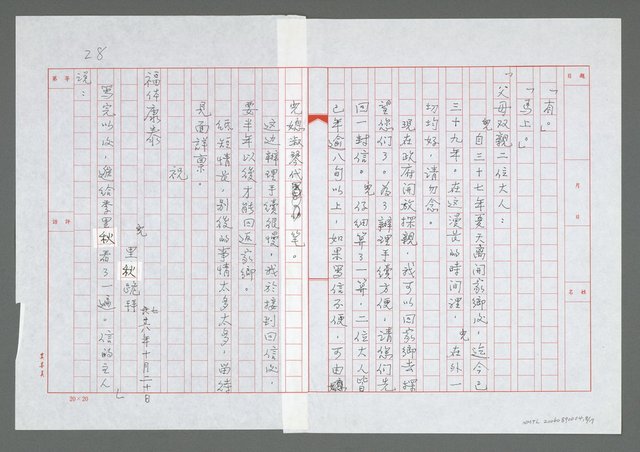 28
「有。」
「馬上。」
「父母双親二位大人：
兒自三十七年夏天离開家鄉後，迄今已
三十九年。在这漫長的時間裡，兒在外一
切均好，請勿念。
現在政府開放探親，我可以回家鄉去探
望您們了。為了辦理手續方便，請您們先
回一封信。兒仔細算了一算，二位大人皆
已年逾八旬以上，如果写信不便，可由
兒媳淑琴代笔。
这边辦理手續很慢，我於接到回信後，
要半年以後才能回返家鄉。
紙短情長，別後的事情太多太多，留待
見面詳禀。
祝
福体康泰
兒
里秋跪拜
七十八年十月二十日
写完以後，遞給李里秋看了一遍。信的主人
說：
」
第 頁
評語
題目
月 日
姓名
20×20
NMTL 20060890024